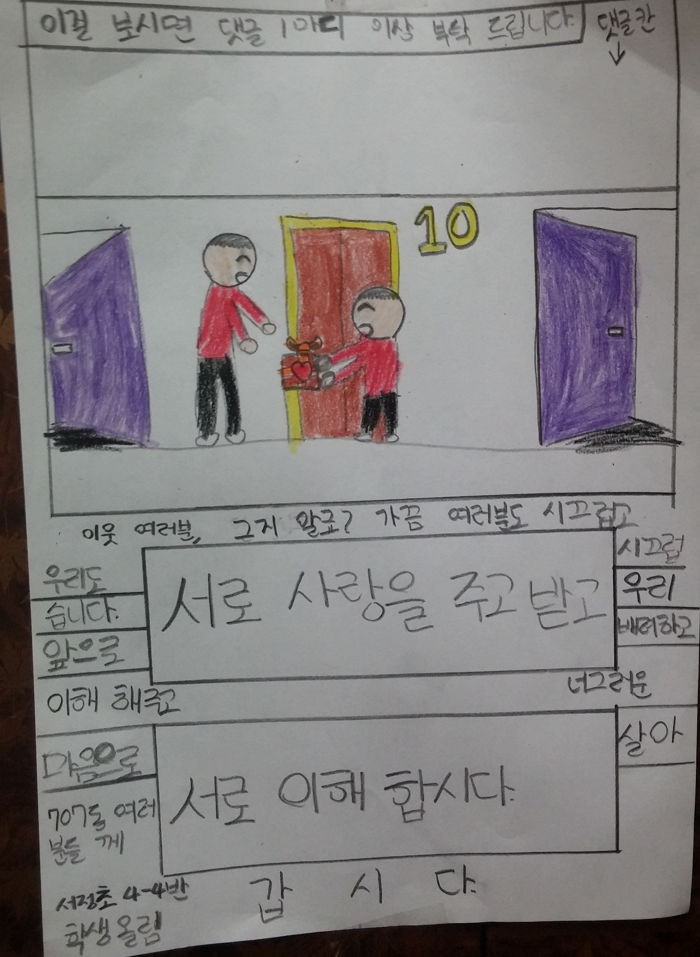 이걸 보시면 댓글 1마디 이상 부탁 드립니다.
댓글칸
↓
10
이웃 여러분, 그치 말죠? 가끔 여러분도 시끄럽고
우리도 시끄럽
습니다. 우리
앞으로 배려하고
서로 사랑을 주고 받고
이해 해주고 너그러운
마음으로 살아
서로 이해 합시다.
갑시다.
707동 여러
분들 께
서정초 4-4반
학생 올림